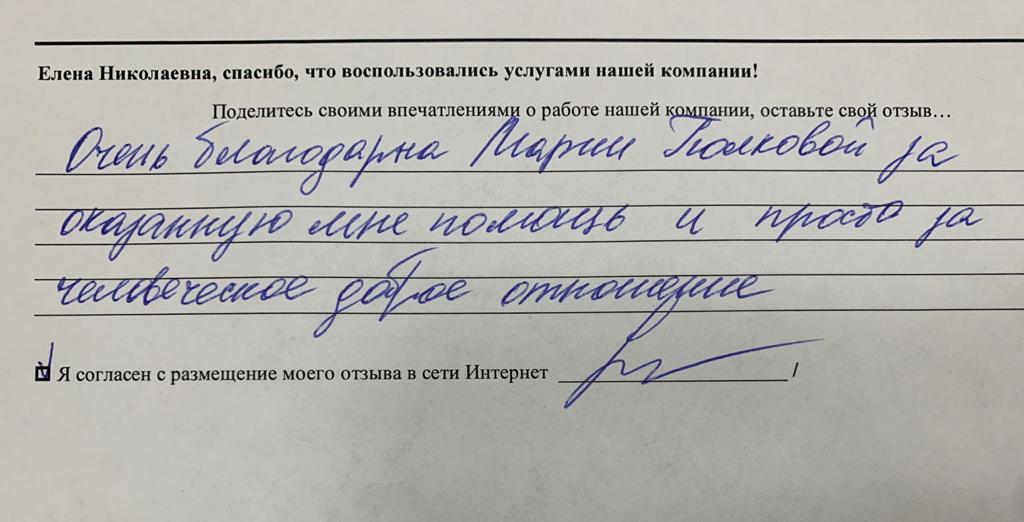 Елена Николаевна, спасибо, что воспользовались услугами нашей компании!
Поделитесь своими впечатлениями о работе нашей компании, оставьте свой отзыв…
Очень благодарна Марии Полковой за
оказанную мне помощь и просто за
человеческое доброе отношение
Я согласен с размещение моего отзыва в сети Интернет /